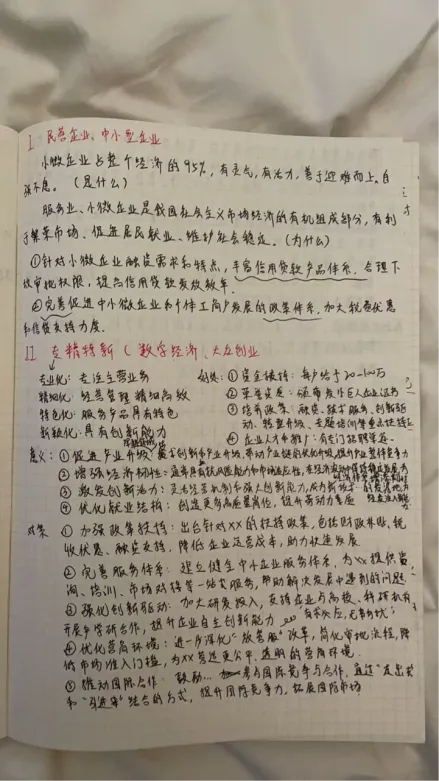 I 民营企业、中小型企业
小微企业占整个经济的95%,有灵气,有活力,善于迎难而上、自
强不息。(是什么)
服务业、小微企业是我国社会主义市场经济的有机组成部分,有利
于繁荣市场、促进居民就业、维护社会稳定。(为什么)
①针对小微企业融资需求和特点,丰富信用贷款产品体系,合理下
放审批权限,提高信用贷款发放效率。
②完善促进中小微企业和个体工商户发展的政策体系,加大税费优惠
和信贷支持力度。
II 专精特新(数字经济、大众创业
专业化:专注主营业务
精细化:经营管理精细高效
特色化:服务产品具有特色
新颖化:具有创新能力
①资金扶持:每户给予20-100万
②荣誉奖励:颁布发小巨人企业证书
③培育政策:融资、技术服务、创新驱
动、转型升级、专题培训等重点扶持
④企业人才申推广:有专门招聘渠道
意义:①促进产业升级:
②增强经济韧性:通常具有抗风险能力和市场适应性,
③激发创新活力:灵活经营机制和强大创新能力,
④优化就业结构:创造更多高质量岗位,提升劳动力素质
对策 ①加强政策扶持:出台针对XX的扶持政策,包括财政补贴、税
收优惠、融资支持,降低企业运营成本,助力快速发展
②完善服务体系:建立健全中小企业服务体系,为XX提供资
询、培训、市场对接等一站式服务,帮助解决发展中遇到的问题
③强化创新驱动:加大研发投入,支持企业与高校、科研机构
开展产学研合作,提升企业自主创新能力
有求必应,无事勿扰
④优化营商环境:进一步深化"放管服"改革,简化审批流程,降
低市场准入门槛,为XX营造更公平、透明的营商环境。
⑤推动国际合作:鼓励...参与国际竞争与合作,通过"走出去"
和"引进来"结合的方式,提升国际竞争力,拓展国际市场